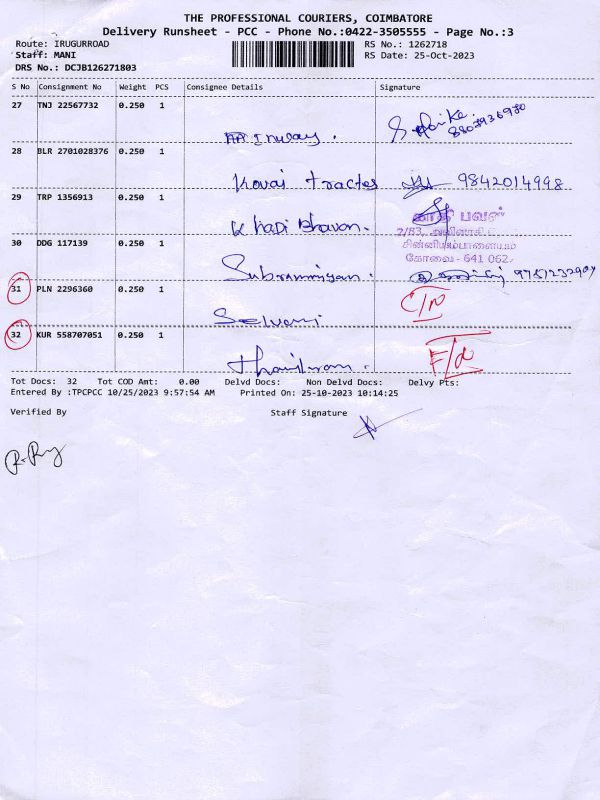 THE PROFESSIONAL COURIERS, COIMBATORE
Delivery Runsheet - PCC - Phone No.:0422-3505555 - Page No.:3
Route: IRUGURROAD
RS No.: 1262718
Staff: MANI
RS Date: 25-Oct-2023
DRS No.: DCJB126271803
S No Consignment No Weight PCS Consignee Details Signature
27 TNJ 22567732 0.250 1
8807936930
28 BLR 2701028376 0.250 1
Kovai Tractos 9842014998
29 TRP 1356913 0.250 1
Khadi Bhavan.
காதி பவன்
2/83,
சின்னியம்பாளையம்
கோவை - 641 062.
30 DDG 117139 0.250 1
Subramniyan.
31 PLN 2296360 0.250 1
Selvani
32 KUR 558707051 0.250 1
Tot Docs: 32 Tot COD Amt: 0.00 Delvd Docs: Non Delvd Docs: Delvy Pts:
Entered By :TPCPCC 10/25/2023 9:57:54 AM Printed On: 25-10-2023 10:14:25
Verified By Staff Signature